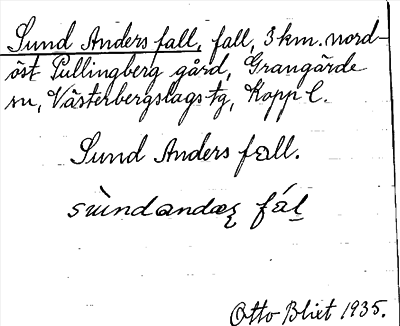 Sund Anders fall, fall, 3 km. nord-
öst Pullingberg gård, Grangärde
sn, Västerbergslags tg, Kopp l.
Sund Anders fall.
Otto Blixt 1935.